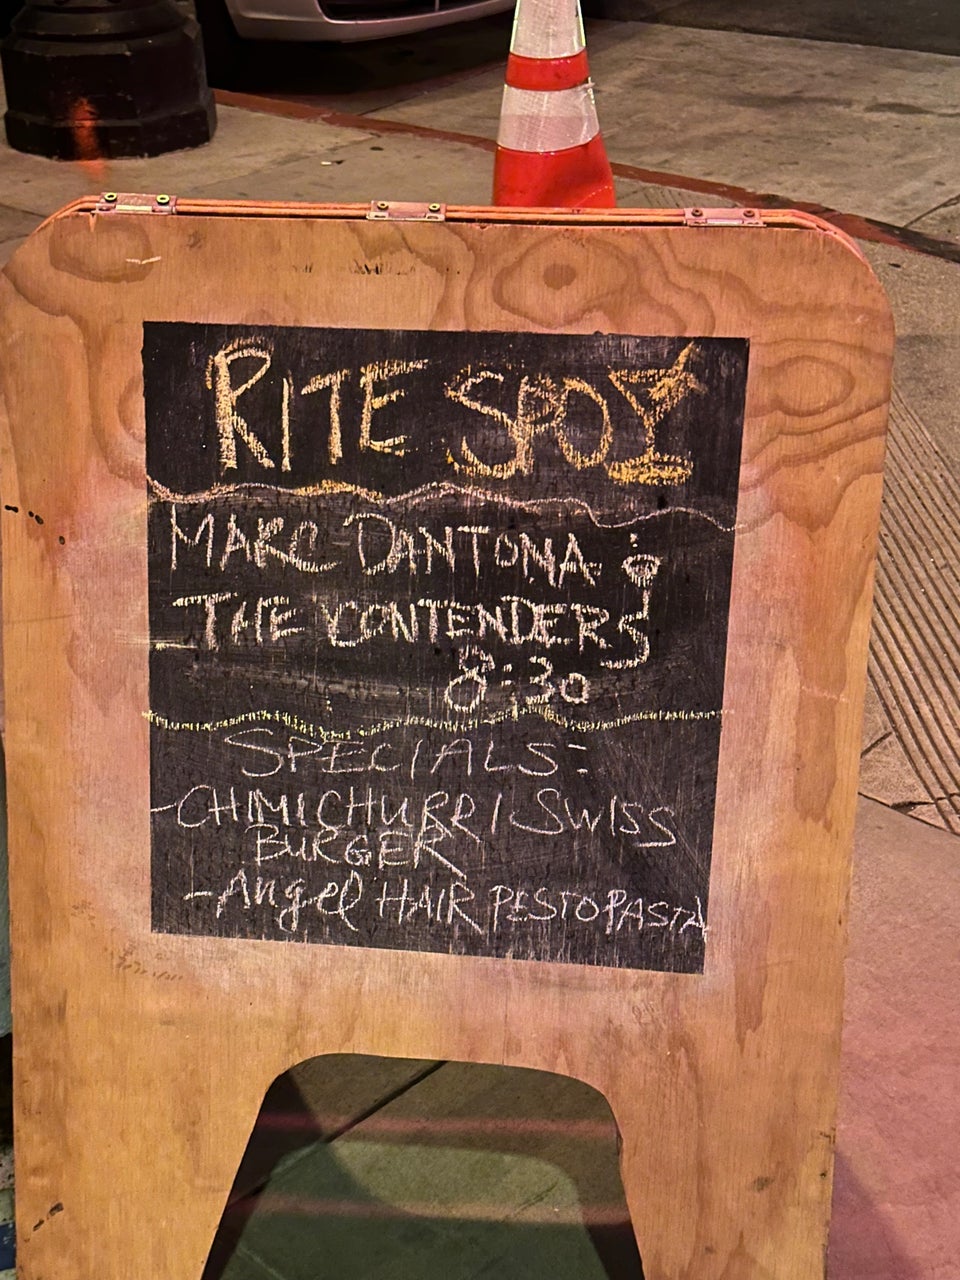 RITE SPOT
MARC DANTONA &
THE CONTENDERS
8:30
SPECIALS:
-CHIMICHURRI SWISS
BURGER
-Angel HAIR PESTO PASTA